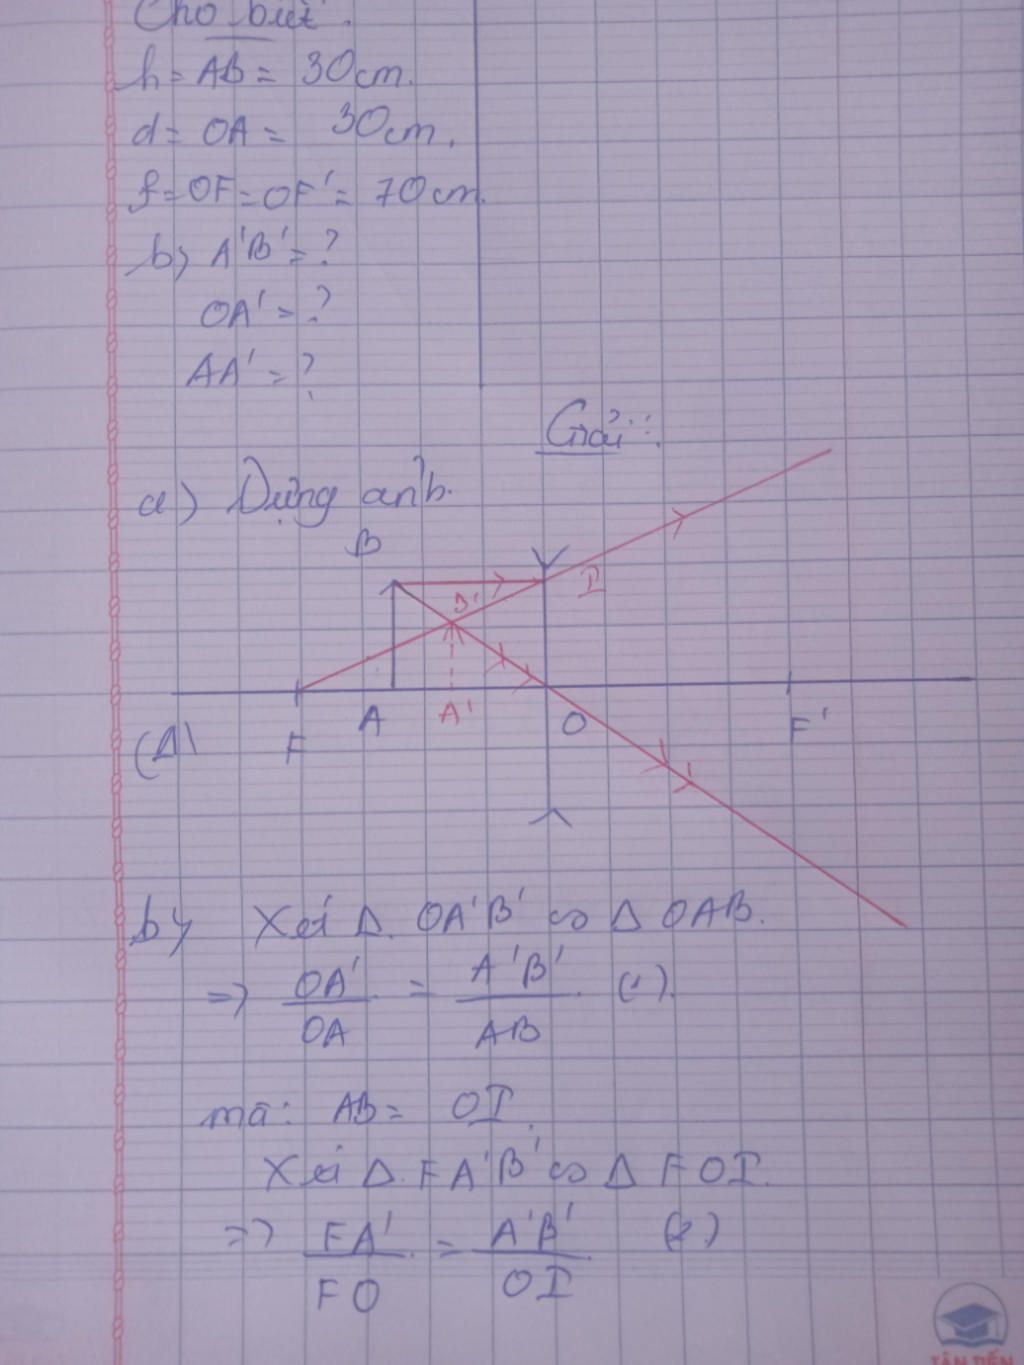 Cho biết:
h = AB = 30cm.
d = OA = 30cm.
f = OF = OF' = 70cm.
b) A'B' = ?
OA' = ?
AA' = ?
Giải:
a) Dựng ảnh.
B
I
B'
(Δ)
F
A
A'
O
F'
b) Xét Δ. OA'B' ∽ Δ OAB.
=> OA'/OA = A'B'/AB (1).
mà: AB = OI.
Xét Δ. FA'B' ∽ Δ FOI.
=> FA'/FO = A'B'/OI (2)
TÂN TIẾN